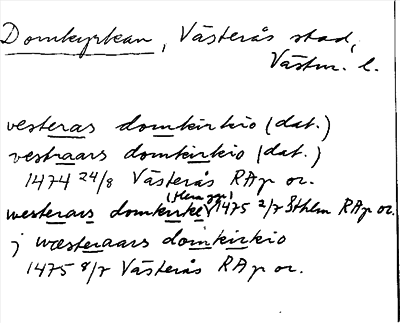 Domkyrkan, Västerås stad,
Västm. l.
vesteras domkirkio (dat.)
vestraars domkirkio (dat.)
1474 24/8 Västerås RAp or.
westerars domkirke (flera ggr) 1475 2/7 Sthlm RAp or.
j wæsteraars domkirkio
1475 8/7 Västerås RAp or.